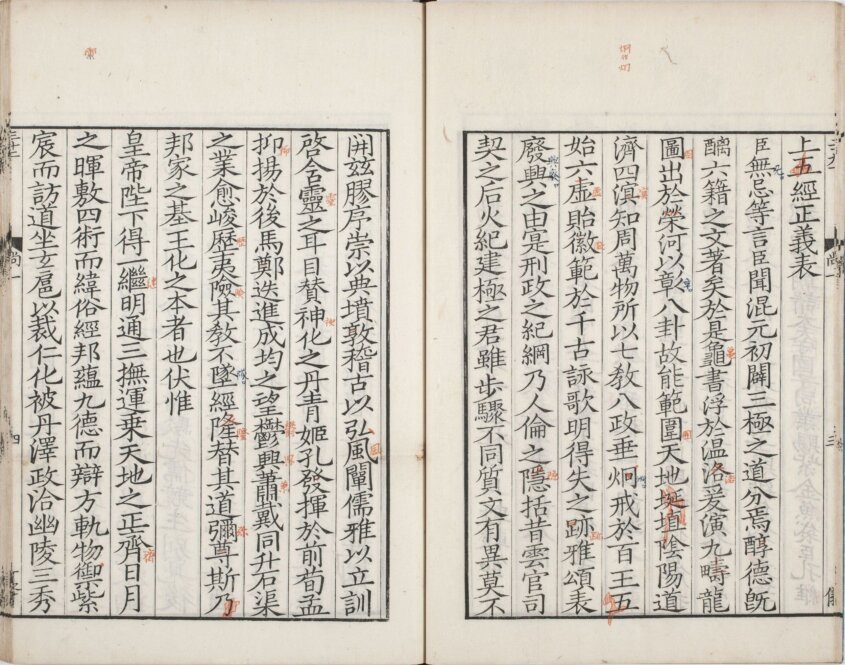 上五經正義表
臣無忌等言臣聞混元初闢三極之道分焉醇德旣
醨六籍之文著矣於是龜書浮於温洛爰演九疇龍
圖出於榮河以彰八卦故能範圍天地埏埴陰陽道
濟四溟知周萬物所以七敎八政垂炯戒於百王五
始六虛貽徽範於千古詠歌明得失之跡雅頌表
廢興之由寔刑政之紀綱乃人倫之隱括昔雲官司
契之后火紀建極之君雖步驟不同質文有異莫不
開茲膠序崇以典墳敦稽古以弘風闡儒雅以立訓
啓含靈之耳目賛神化之丹青姬孔發揮於前荀孟
抑揚於後馬鄭迭進成均之望鬱興蕭戴同升石渠
之業愈峻歷夷險其敎不墜經隆替其道彌尊斯乃
邦家之基王化之本者也伏惟
皇帝陛下得一繼明通三撫運乗天地之正齊日月
之暉敷四術而緯俗經邦蘊九德而辯方軌物御紫
宸而訪道坐玄扈以裁仁化被丹澤政洽幽陵三秀
尚一